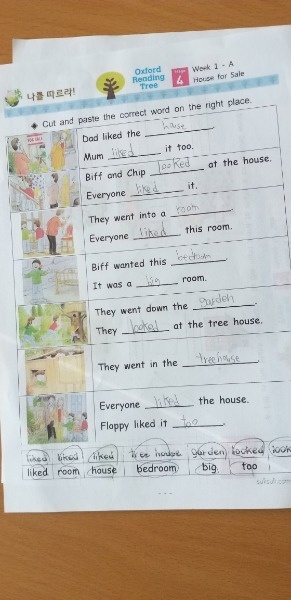 나를 따르라!
Oxford Reading Tree
Stage 4
Week 1 - A
House for Sale
◈ Cut and paste the correct word on the right place.
Dad liked the house.
Mum liked it too.
Biff and Chip looked at the house.
Everyone liked it.
They went into a room.
Everyone liked this room.
Biff wanted this bedroom.
It was a big room.
They went down the garden.
They looked at the tree house.
They went in the treehouse.
Everyone liked the house.
Floppy liked it too.
liked liked liked tree house garden looked look
liked room house bedroom big too